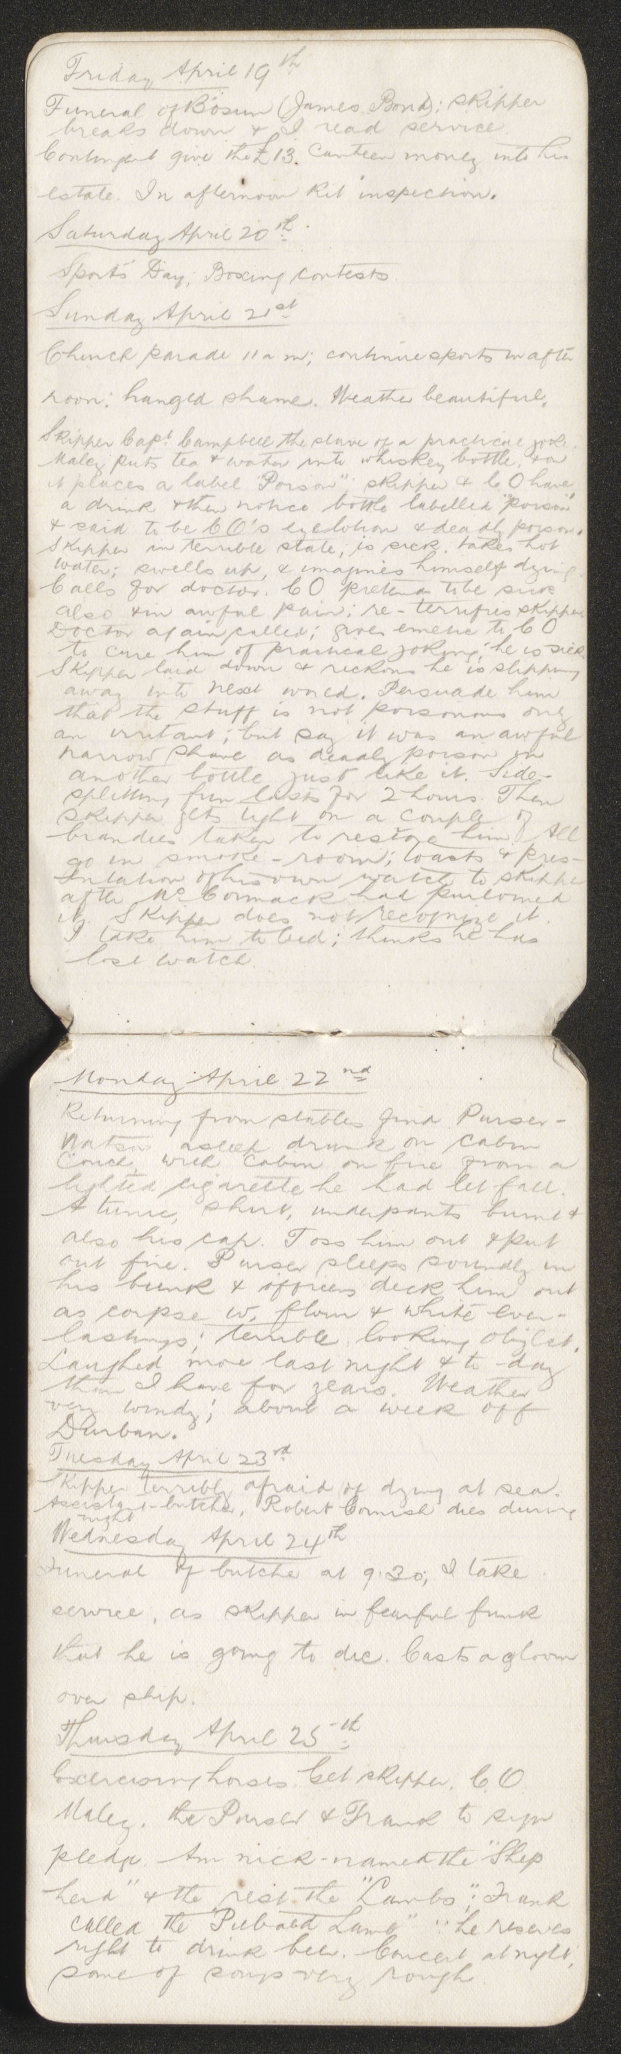 Friday April 19th
Funeral of Bosun (James Bond); skipper
breaks down & I read service.
Contingent give the £13. canteen money into his
estate. In afternoon kit inspection.
Saturday April 20th
Sports Day; Boxing contests
Sunday April 21st
Church parade 11 a m; continue sports in after
noon; hanged shame. Weather beautiful.
Skipper Capt Campbell the slave of a practical joke.
Maley puts tea & water into whiskey bottle, & on
it places a label "Poison" skipper & CO have
a drink & then notice bottle labelled "poison"
& said to be CO's eyelotion & deadly poison.
Skipper in terrible state, is sick, takes hot
water; swells up, & imagines himself dying.
Calls for doctor. CO pretends to be sick
also & in awful pain; re-terrifies skipper
Doctor again called; gives emetic to CO
to cure him of practical joking; he is sick
Skipper laid down & reckons he is slipping
away into next world. Persuade him
that the stuff is not poisonous only
an irritant; but say it was an awful
narrow shave as deadly poison in
another bottle just like it. Side-
splitting fun lasts for 2 hours Then
skipper gets tight on a couple of
brandies taken to restore him. All
go in smoke-room; toasts & pres-
entation of his own watch to skipper
after McCormack had purloined
it. Skipper does not recognize it.
I take him to bed; thinks he has
lost watch
Monday April 22nd
Returning from stables find Purser-
Watson asleep drunk on cabin
couch, with cabin on fire from a
lighted cigarette he had let fall.
A tunic, shirt, underpants burnt &
also his cap. Toss him out & put
out fire. Purser sleeps soundly in
his bunk & officers deck him out
as corpse w. flour & white ever-
lastings; terrible looking object.
Laughed more last night & to-day
than I have for years. Weather
very windy; about a week off
Durban.
Tuesday April 23rd
Skipper terribly afraid of dying at sea.
Assistant-butcher, Robert Cornish dies during
night
Wednesday April 24th
Funeral of butcher at 9.30; I take
service, as skipper in fearful funk
that he is going to die. Casts a gloom
over ship.
Thursday April 25th
Exercising horses. Get skipper, C.O.
Maley, the Purser & Frank to sign
pledge. Am nick-named the "Shep
herd" & the rest the "Lambs"; Frank
called the "Piebald Lamb" ∵ he reserves
right to drink beer. Concert at night;
some of songs very rough